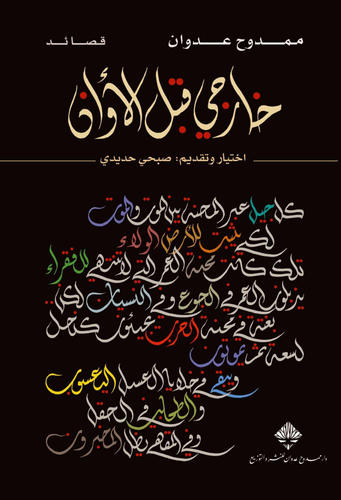 ممدوح عدوان
قصائد
خارجي قبل الأوان
اختيار وتقديم: صبحي حديدي
كل جيل عبر المحنة بين الموت والموت
لكي يثبت للأرض الولاء
تلك كانت محنة العمر التي لا تنتهي للفقراء
يدفنون العمر في الجوع وفي النسيان لكن
بغتة في محنة الحرب يجيئون كنحل
لسعة ثم يموتون
ويبقى في خلايا العسل اليعسوب
والطحلب في الحقل
وفي المقهى يظل المخبرون
دار ممدوح عدوان للنشر والتوزيع